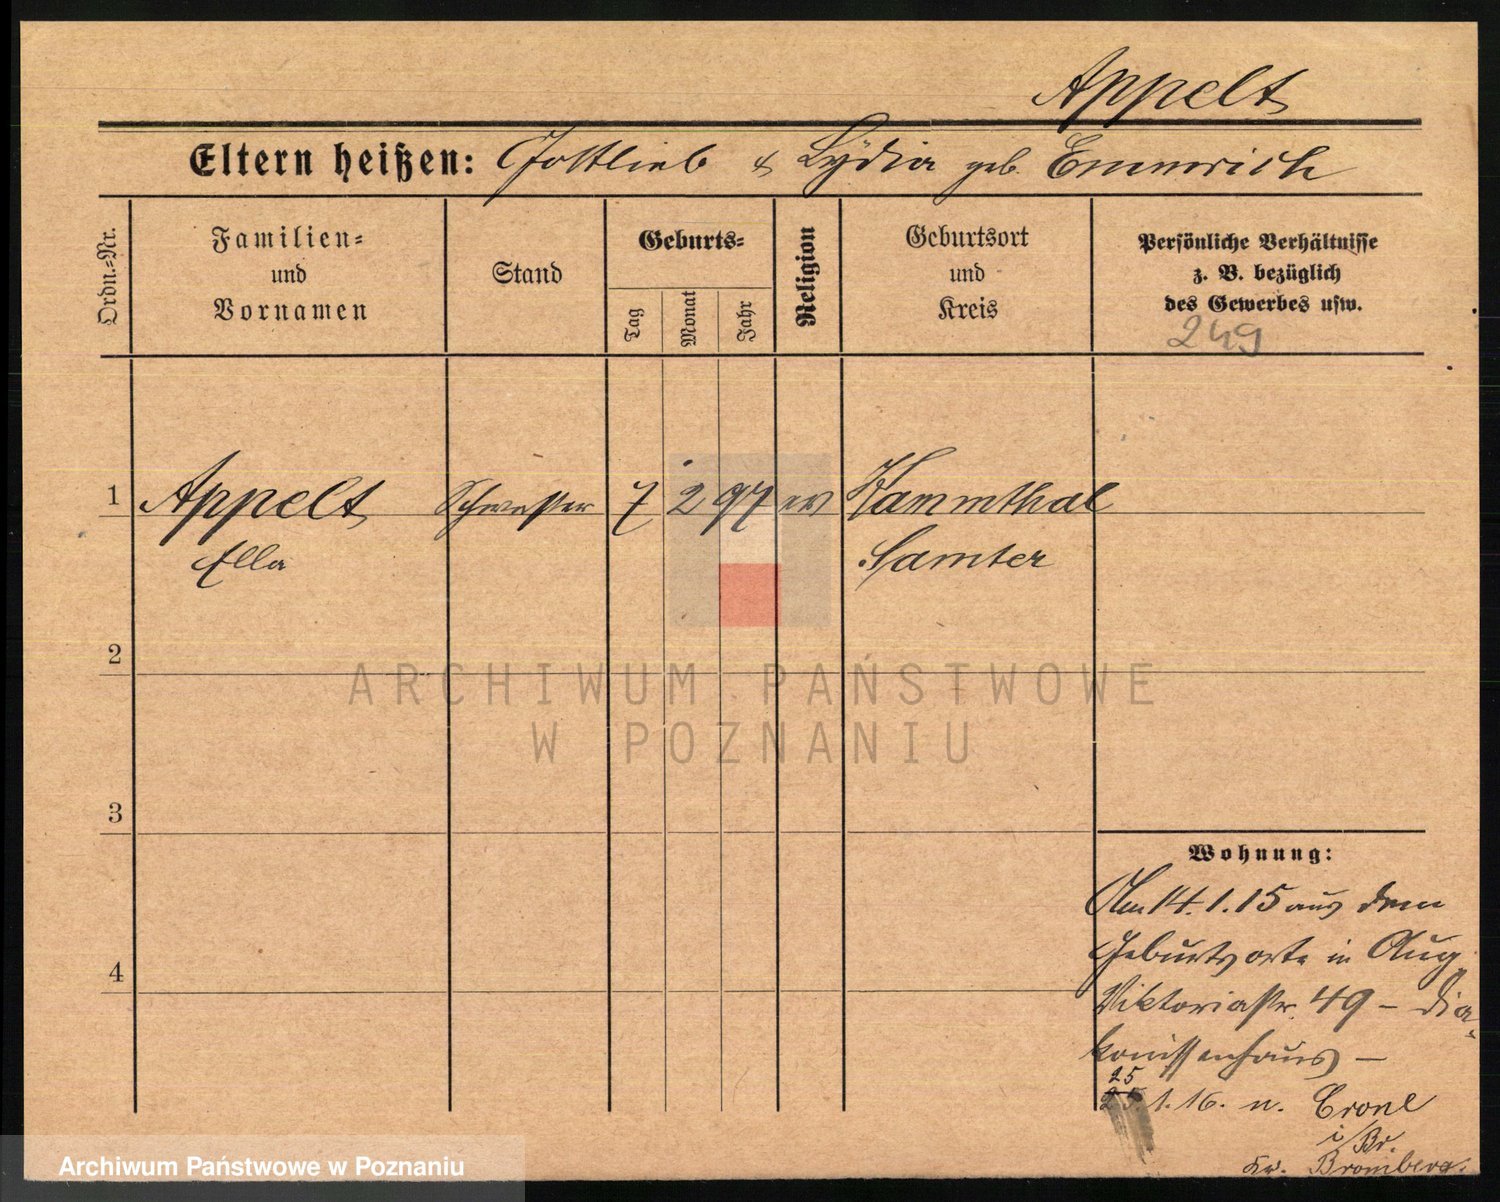 Appelt
Eltern heißen: Gottlieb & Lydia geb. Emmerich
Ordn.-Nr.
Familien-
und
Vornamen
Stand
Geburts-
Tag
Monat
Jahr
Religion
Geburtsort
und
Kreis
Persönliche Verhältnisse
z. B. bezüglich
des Gewerbes usw.
249
1 Appelt Schwester 7 2 97 ev Kammthal
Ella Samter
2
3
4
Wohnung:
Am 14.1.15 aus dem
Geburtsorte in Aug.
Viktoriastr. 49 – Dia-
konissenhaus –
25
1.16. n. Crone
i/Br.
Kr. Bromberg.
ARCHIWUM PAŃSTWOWE
W POZNANIU
Archiwum Państwowe w Poznaniu